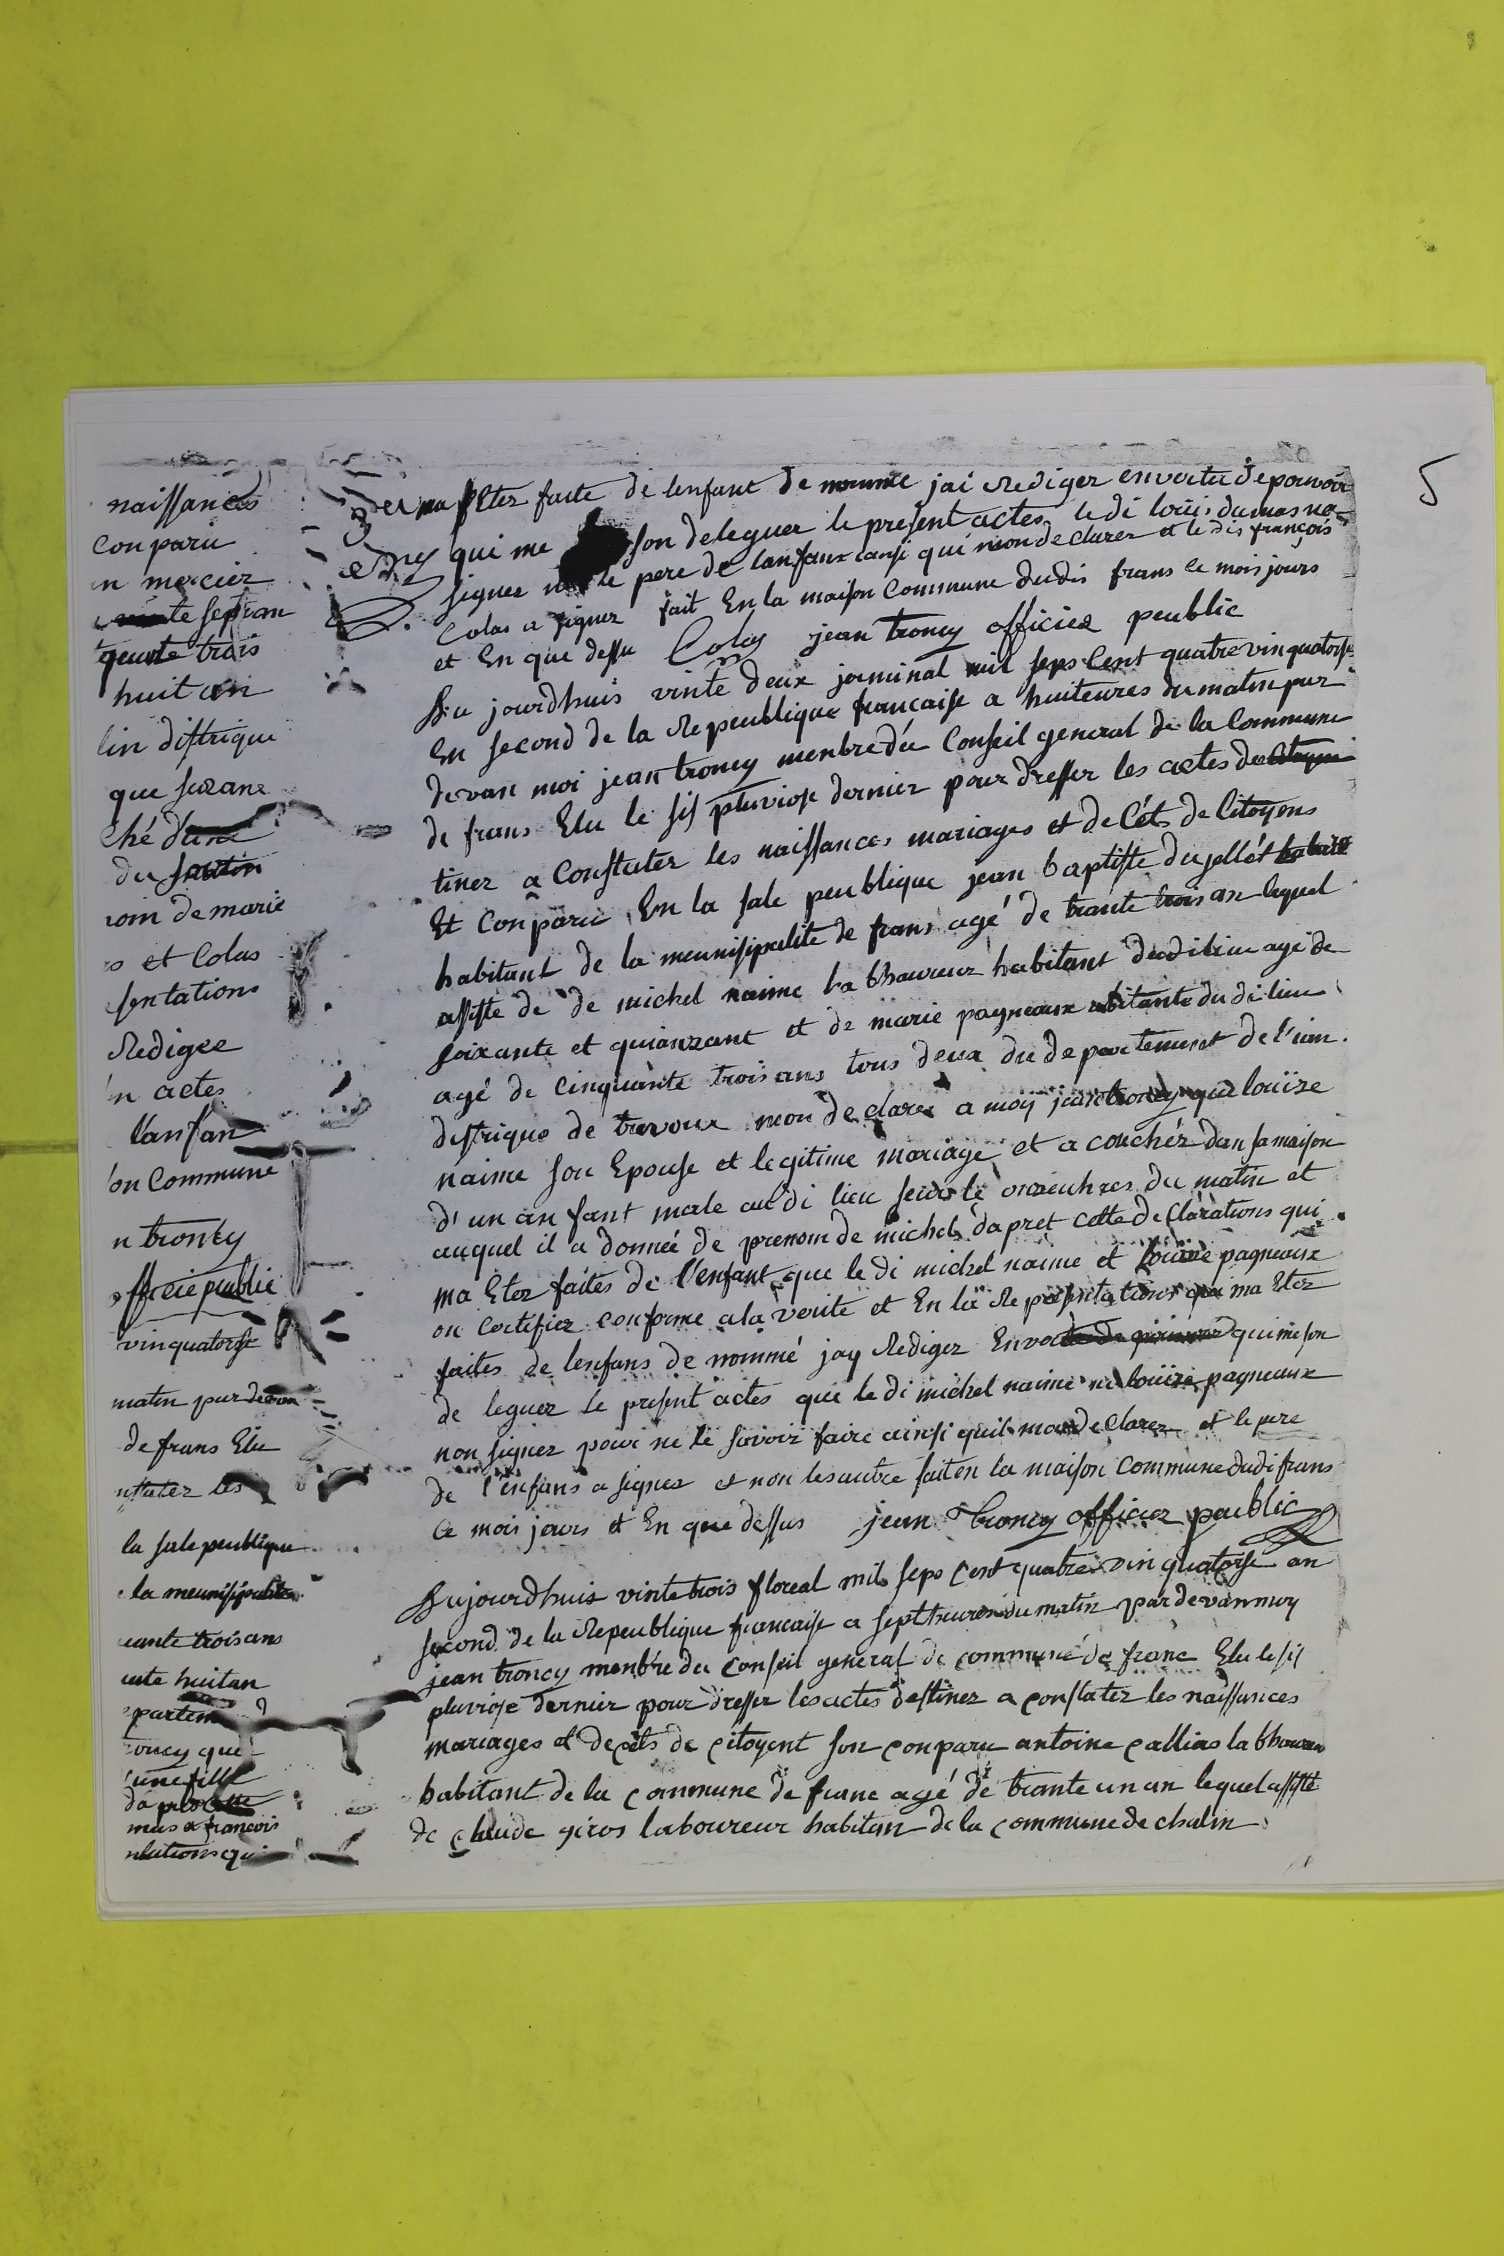 5
naissances
conparu
n mercier
te septan
trois
huit an
lin distrique
que suzane
ché d'une
du
nom de marie
et Colas
sentations
Rediger
n actes
l'anfan
on Commune
n troncy
officie publie
vinquatorse
matin par devan
de frans Elu
nstater les
la sale peublique
la meunisipalite
ante trois ans
nte huitan
partem
troncy que
une fille
da pres cette
mas a francois
ntations qui
ma Eter faite de lenfant de nommé jai Rediger envertu de pouvoir
qui me son deleguer le present actes le di louis dumas na
signer le pere de lanfans ainsi qui mon declarer et le dis françois
Colas a signer fait En la maison Commune dudis frans le mois jours
et En que dessu Colas jean troncy officier peublic
Au jourdhuis vinte deux jarminal mil seps Cent quatre vin quatorse
En second de la Republique francaise a huiteures du matin par
devan moi jean troncy menbre du Conseil general de la Commune
de frans Elu le sis pluviose dernier pour dresser les actes des
tinez a Constater les naissances mariages et de Céts de Citoyens
Et Conparu En la sale peublique jean baptiste dujellét
habitant de la meunisipalité de frans agé de trante trois an lequel
assiste de de michel naime la bhoureur habitant dudi lieu agé de
soixante et quinzant et de marie pagneaux abitante du di lieu
agé de Cinquante trois ans tous deux du departement de l'ain
distrique de trevoux mon declarer a moy jean troncy que louïze
naime son Epouse et legitime mariage et a couchér dan sa maison
d'un an fant male au di lieu le onzeuhres du matin et
auquel il a donneé de prenom de michel dapret cette declarations qui
ma Eter faites de l'enfant que le di michel naime et louïze pagneaux
on certifier conforme a la verité et En la Representations qui ma Eter
faites de lenfans de nommé jay Rediger En qui me son
deleguer le present actes que le di michel naime ni louïze pagneaux
non signer pour ne le savoir faire ainsi quil mon declarer et le pere
de l'enfans a signer et non les autre fait en la maison Commune dudi frans
Ce mois jours et En que dessus jean troncy officier peublic
Aujourdhuis vinte trois floreal mil seps Cent quatre vin quatorse an
second de la Republique francaise a sept heures du matin par devan moy
jean troncy menbre du Conseil general de commune de franc Elu le sis
pluviose dernier pour dresser les actes destinez a constater les naissances
mariages et decèts de citoyent son conparu antoine callias la bhoureur
habitant de la commune de franc agé de trante un an lequel assisté
de claude giros laboureur habitan de la commune de chalin